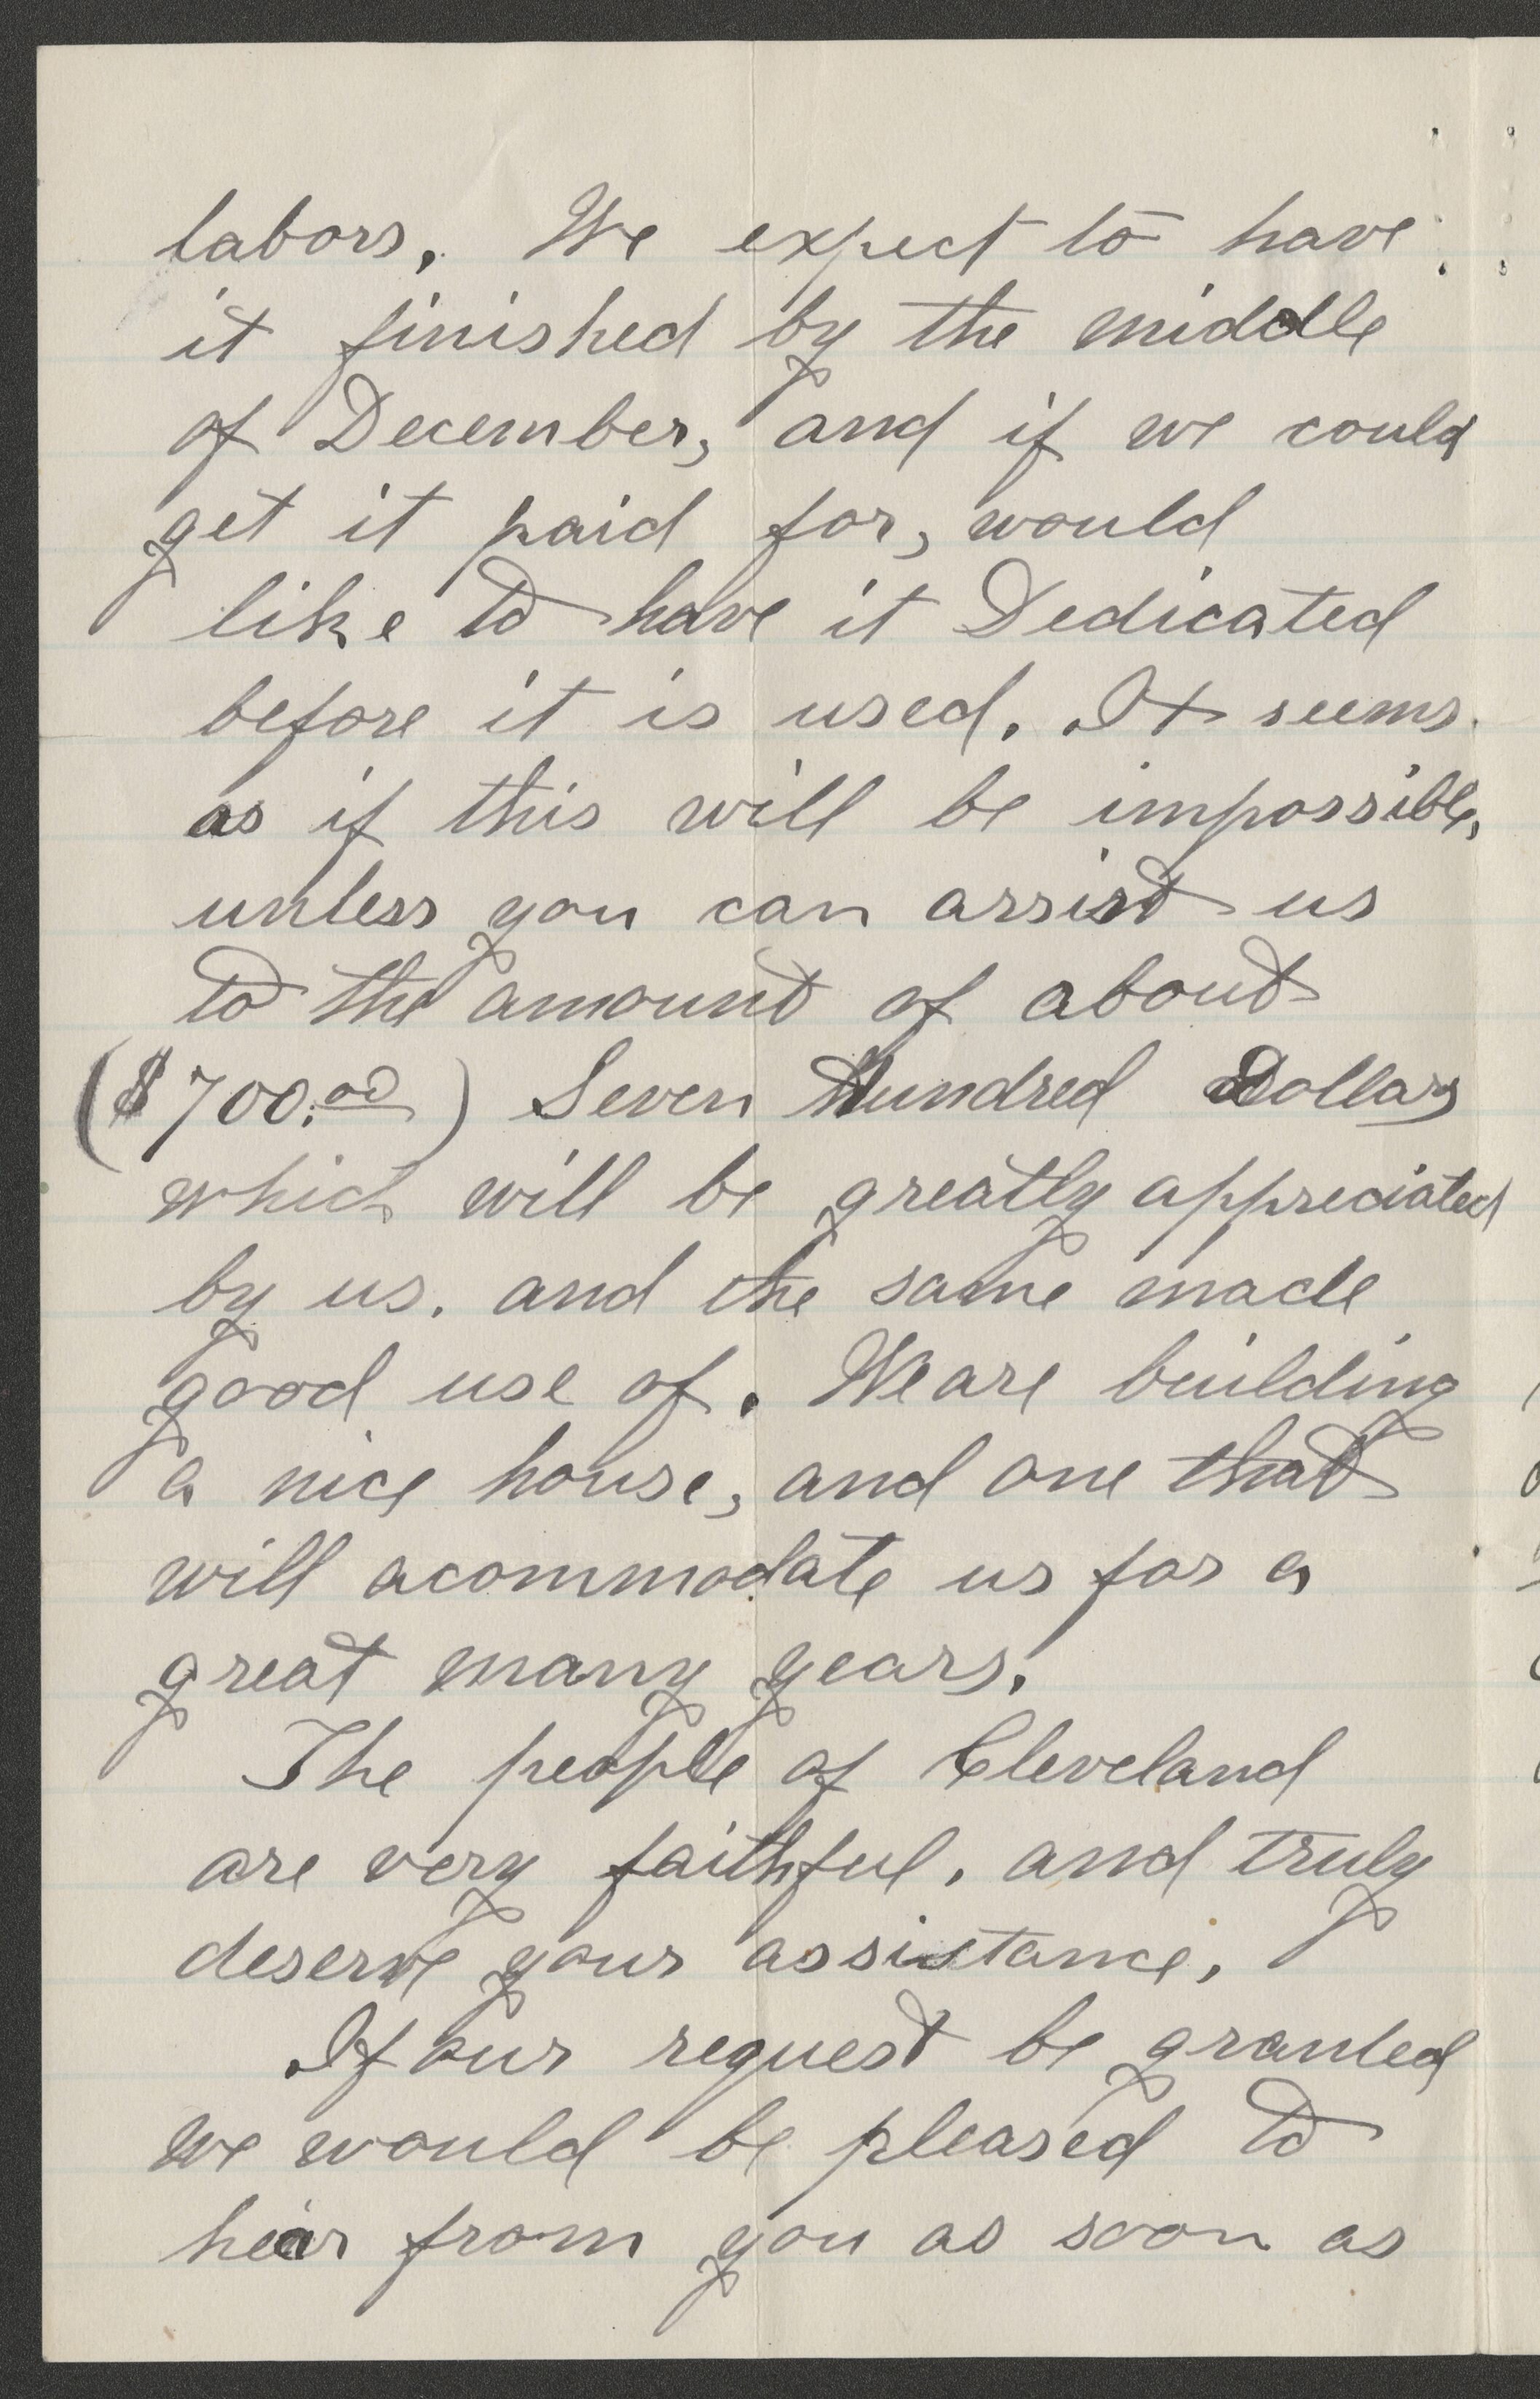 labors. We expect to have
it finished by the middle
of December, and if we could
get it paid for, would
like to have it Dedicated
before it is used. It seems
as if this will be impossible,
unless you can assist us
to the amount of about
($700.00) Seven Hundred Dollars
which will be greatly appreciated
by us. and the same made
good use of. We are building
a nice house, and one that
will acommodate us for a
great many years.
The people of Cleveland
are very faithful, and truly
deserve your assistance.
If our request be granted
we would be pleased to
hear from you as soon as